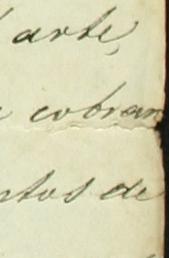 arte,
cobran
rtos de